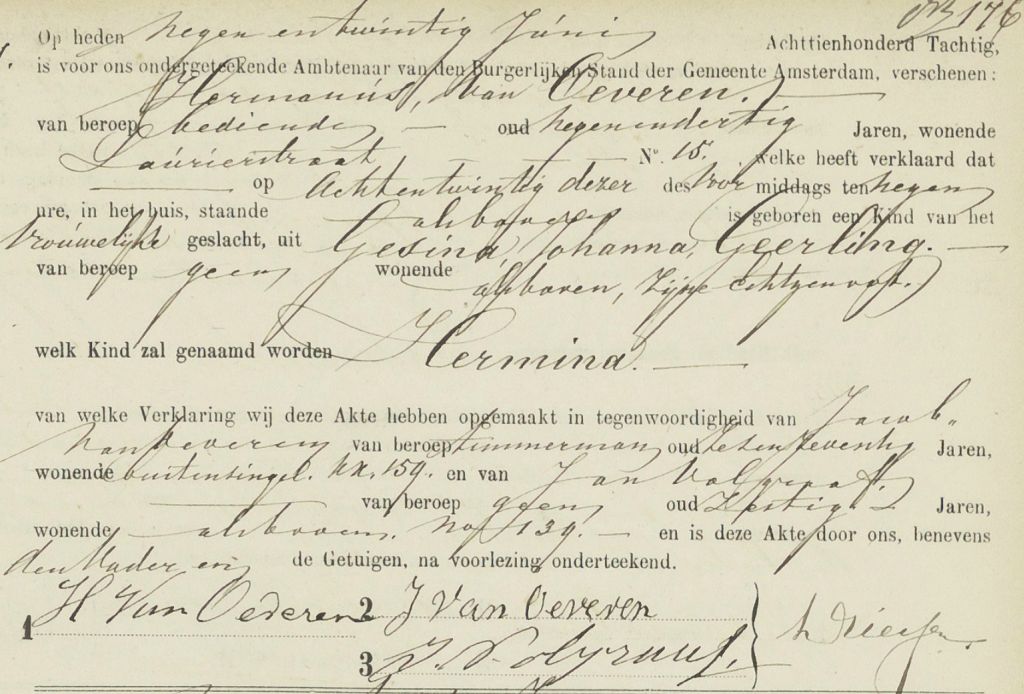 176
Op heden negen en twintig Juni Achttienhonderd Tachtig,
is voor ons ondergeteekende Ambtenaar van den Burgerlijken Stand der Gemeente Amsterdam, verschenen:
Hermanus, van Oeveren.
van beroep bediende oud negenendertig Jaren, wonende
Laurierstraat N°. 15. welke heeft verklaard dat
op Achtentwintig dezer des voor middags ten negen
ure, in het huis, staande alsboven is geboren een Kind van het
Vrouwelijke geslacht, uit Gesina, Johanna, Geerling.
van beroep geen wonende alsboven, zijne echtgenoot.
welk Kind zal genaamd worden Hermina.
van welke Verklaring wij deze Akte hebben opgemaakt in tegenwoordigheid van Jacob
van Oeveren van beroep timmerman oud zesenseventig Jaren,
wonende buitensingel. kk. 159. en van Jan Volgraaf.
van beroep geen oud Zestig Jaren,
wonende alsboven. no 139. en is deze Akte door ons, benevens
den Vader en de Getuigen, na voorlezing onderteekend.
1 H Van Oeveren 2 J Van Oeveren
3 J. Volgraaf.